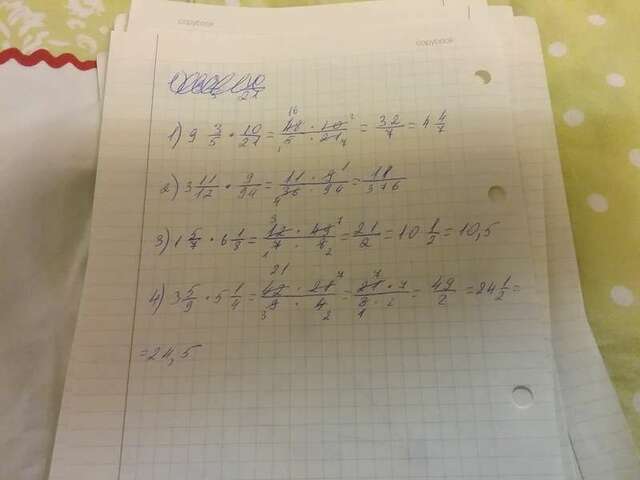 copybook
copybook
21
1) 9 3/5 · 10/21 = 48 · 10 / 5 · 21 = 32/7 = 4 4/7
2) 3 11/12 · 9/94 = 11 · 9 / 36 · 94 = 11/376
3) 1 5/7 · 6 1/8 = 12 · 49 / 7 · 8 = 21/2 = 10 1/2 = 10,5
4) 3 5/9 · 5 1/4 = 42 · 21 / 9 · 4 = 21 · 7 / 3 · 2 = 49/2 = 24 1/2 =
= 24,5